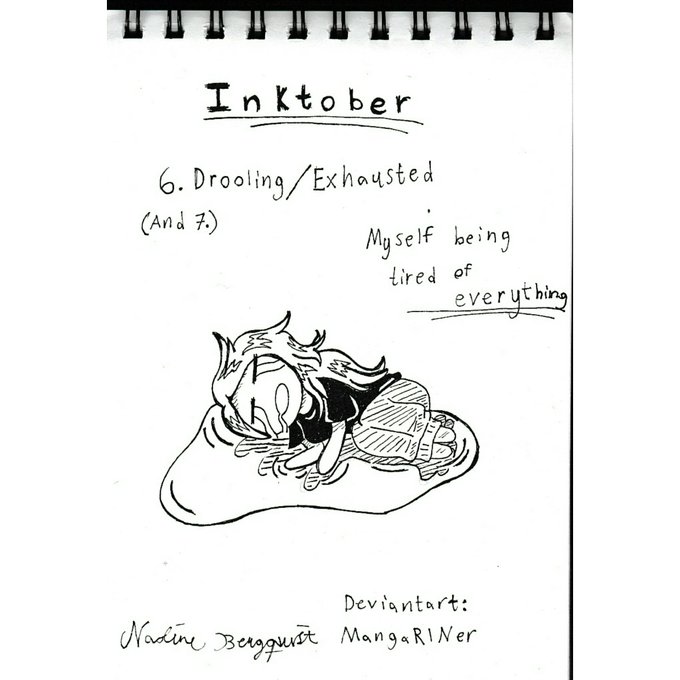 Inktober
6. Drooling/Exhausted
(And 7.)
Myself being
tired of
everything
Deviantart:
Nadine Bergquist MangaRINer